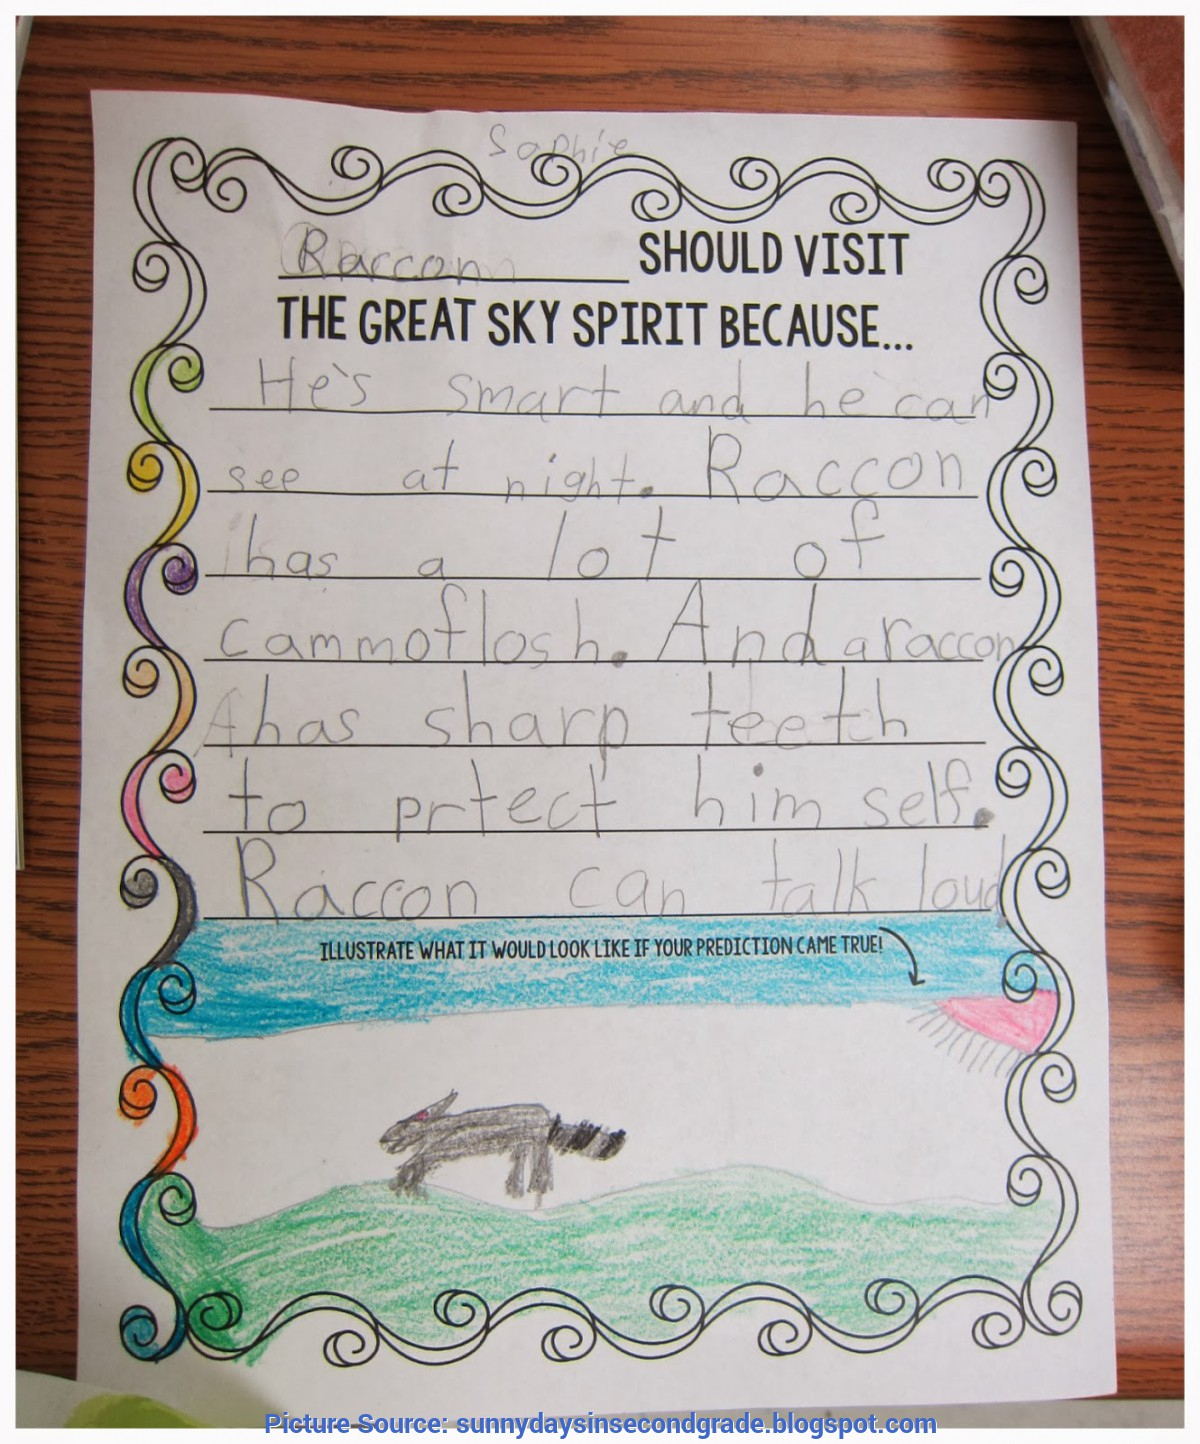 Sophie
Raccon SHOULD VISIT
THE GREAT SKY SPIRIT BECAUSE...
He's smart and he can
see at night. Raccon
has a lot of
cammoflosh. And a raccon
has sharp teeth
to prtect him self.
Raccon can talk loud
ILLUSTRATE WHAT IT WOULD LOOK LIKE IF YOUR PREDICTION CAME TRUE!
Picture Source: sunnydaysinsecondgrade.blogspot.com